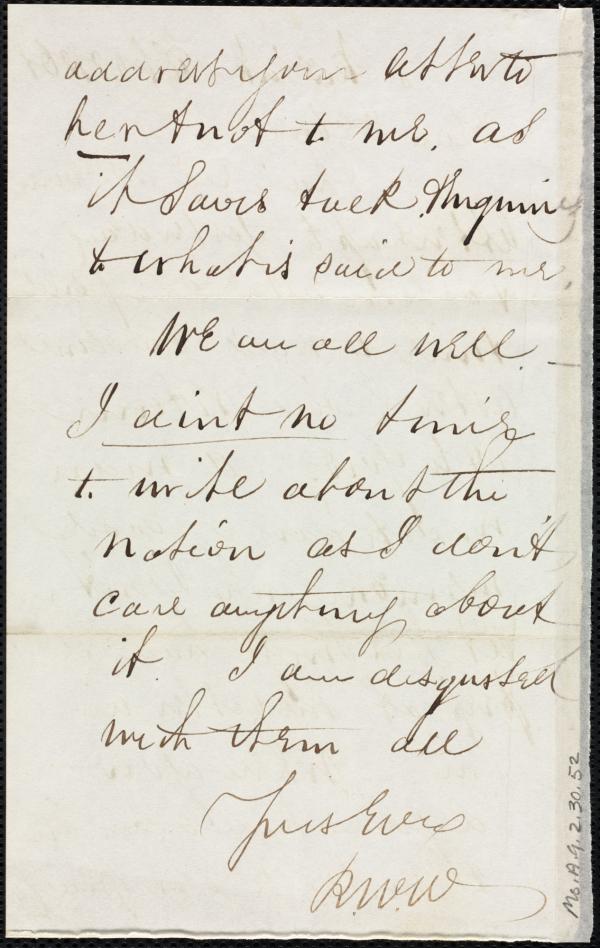 address your letter to
her & not to me. as
it saves talk. & Inquiry
to what is said to me.
We are all well.
I aint no time
to write about the
nation as I don't
care anything about
it. I am disgusted
with them all
Yrs Ever
R.W.W
Ms.A.9.2.30.52